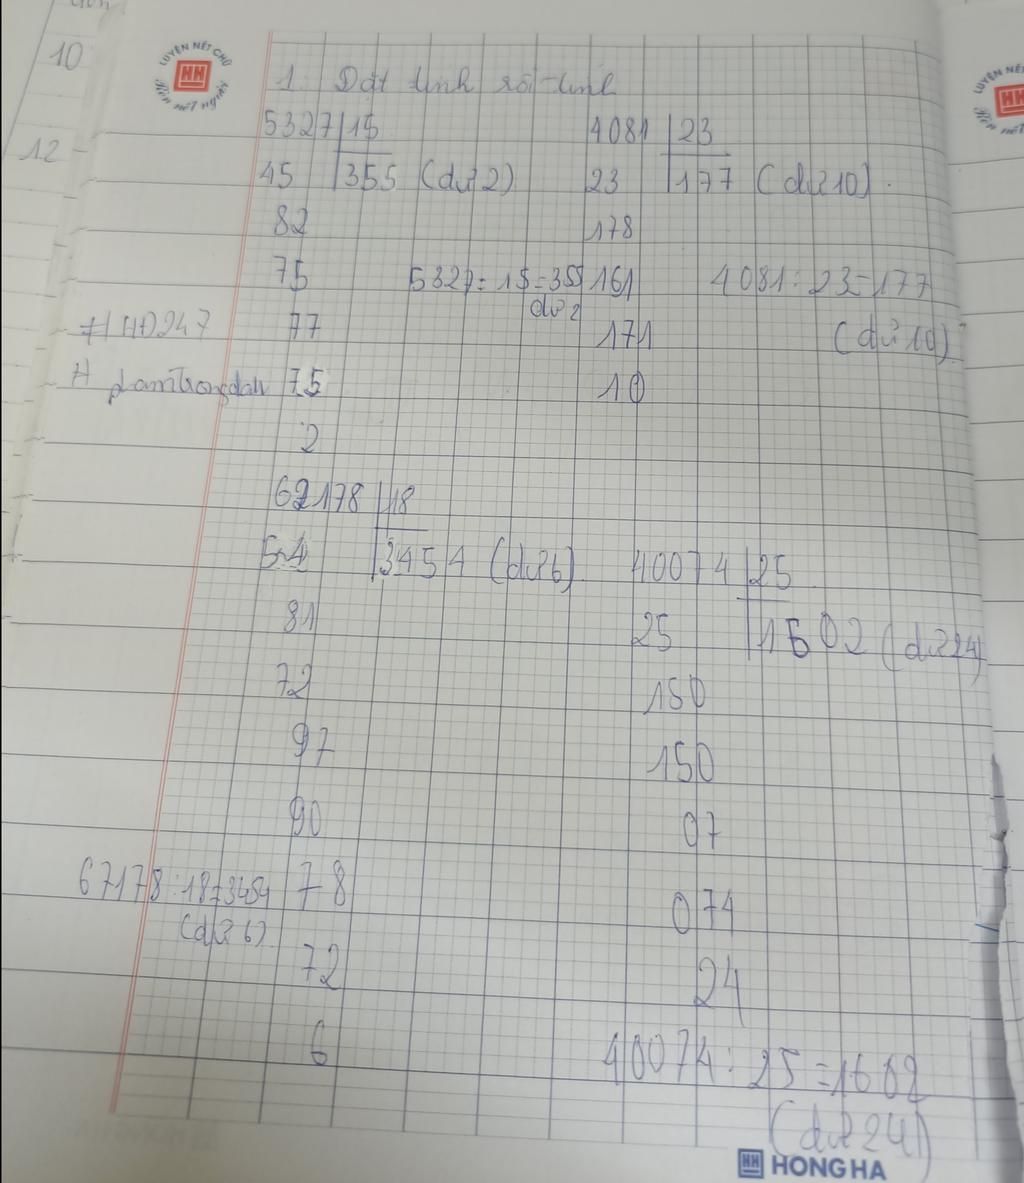 10
12
LUYỆN NÉT CHỮ
HH
Rèn nết người
LUYỆN NÉ
HH
1. Đặt tính rồi tính
5327 15 4081 23
45 355 (dư 2) 23 177 (dư 10)
82 178
75 5327 : 15 = 355 161 4081 : 23 = 177
dư 2
#HĐ247 77 171 (dư 10)
75 10
2
62178 18
54 3454 (dư 6) 40074 25
81 25 1602 (dư 24)
72 150
97 150
90 07
67178 : 18 = 3454 78 074
(dư 6)
72 24
6 40074 : 25 = 1602
(dư 24)
HH HONG HA